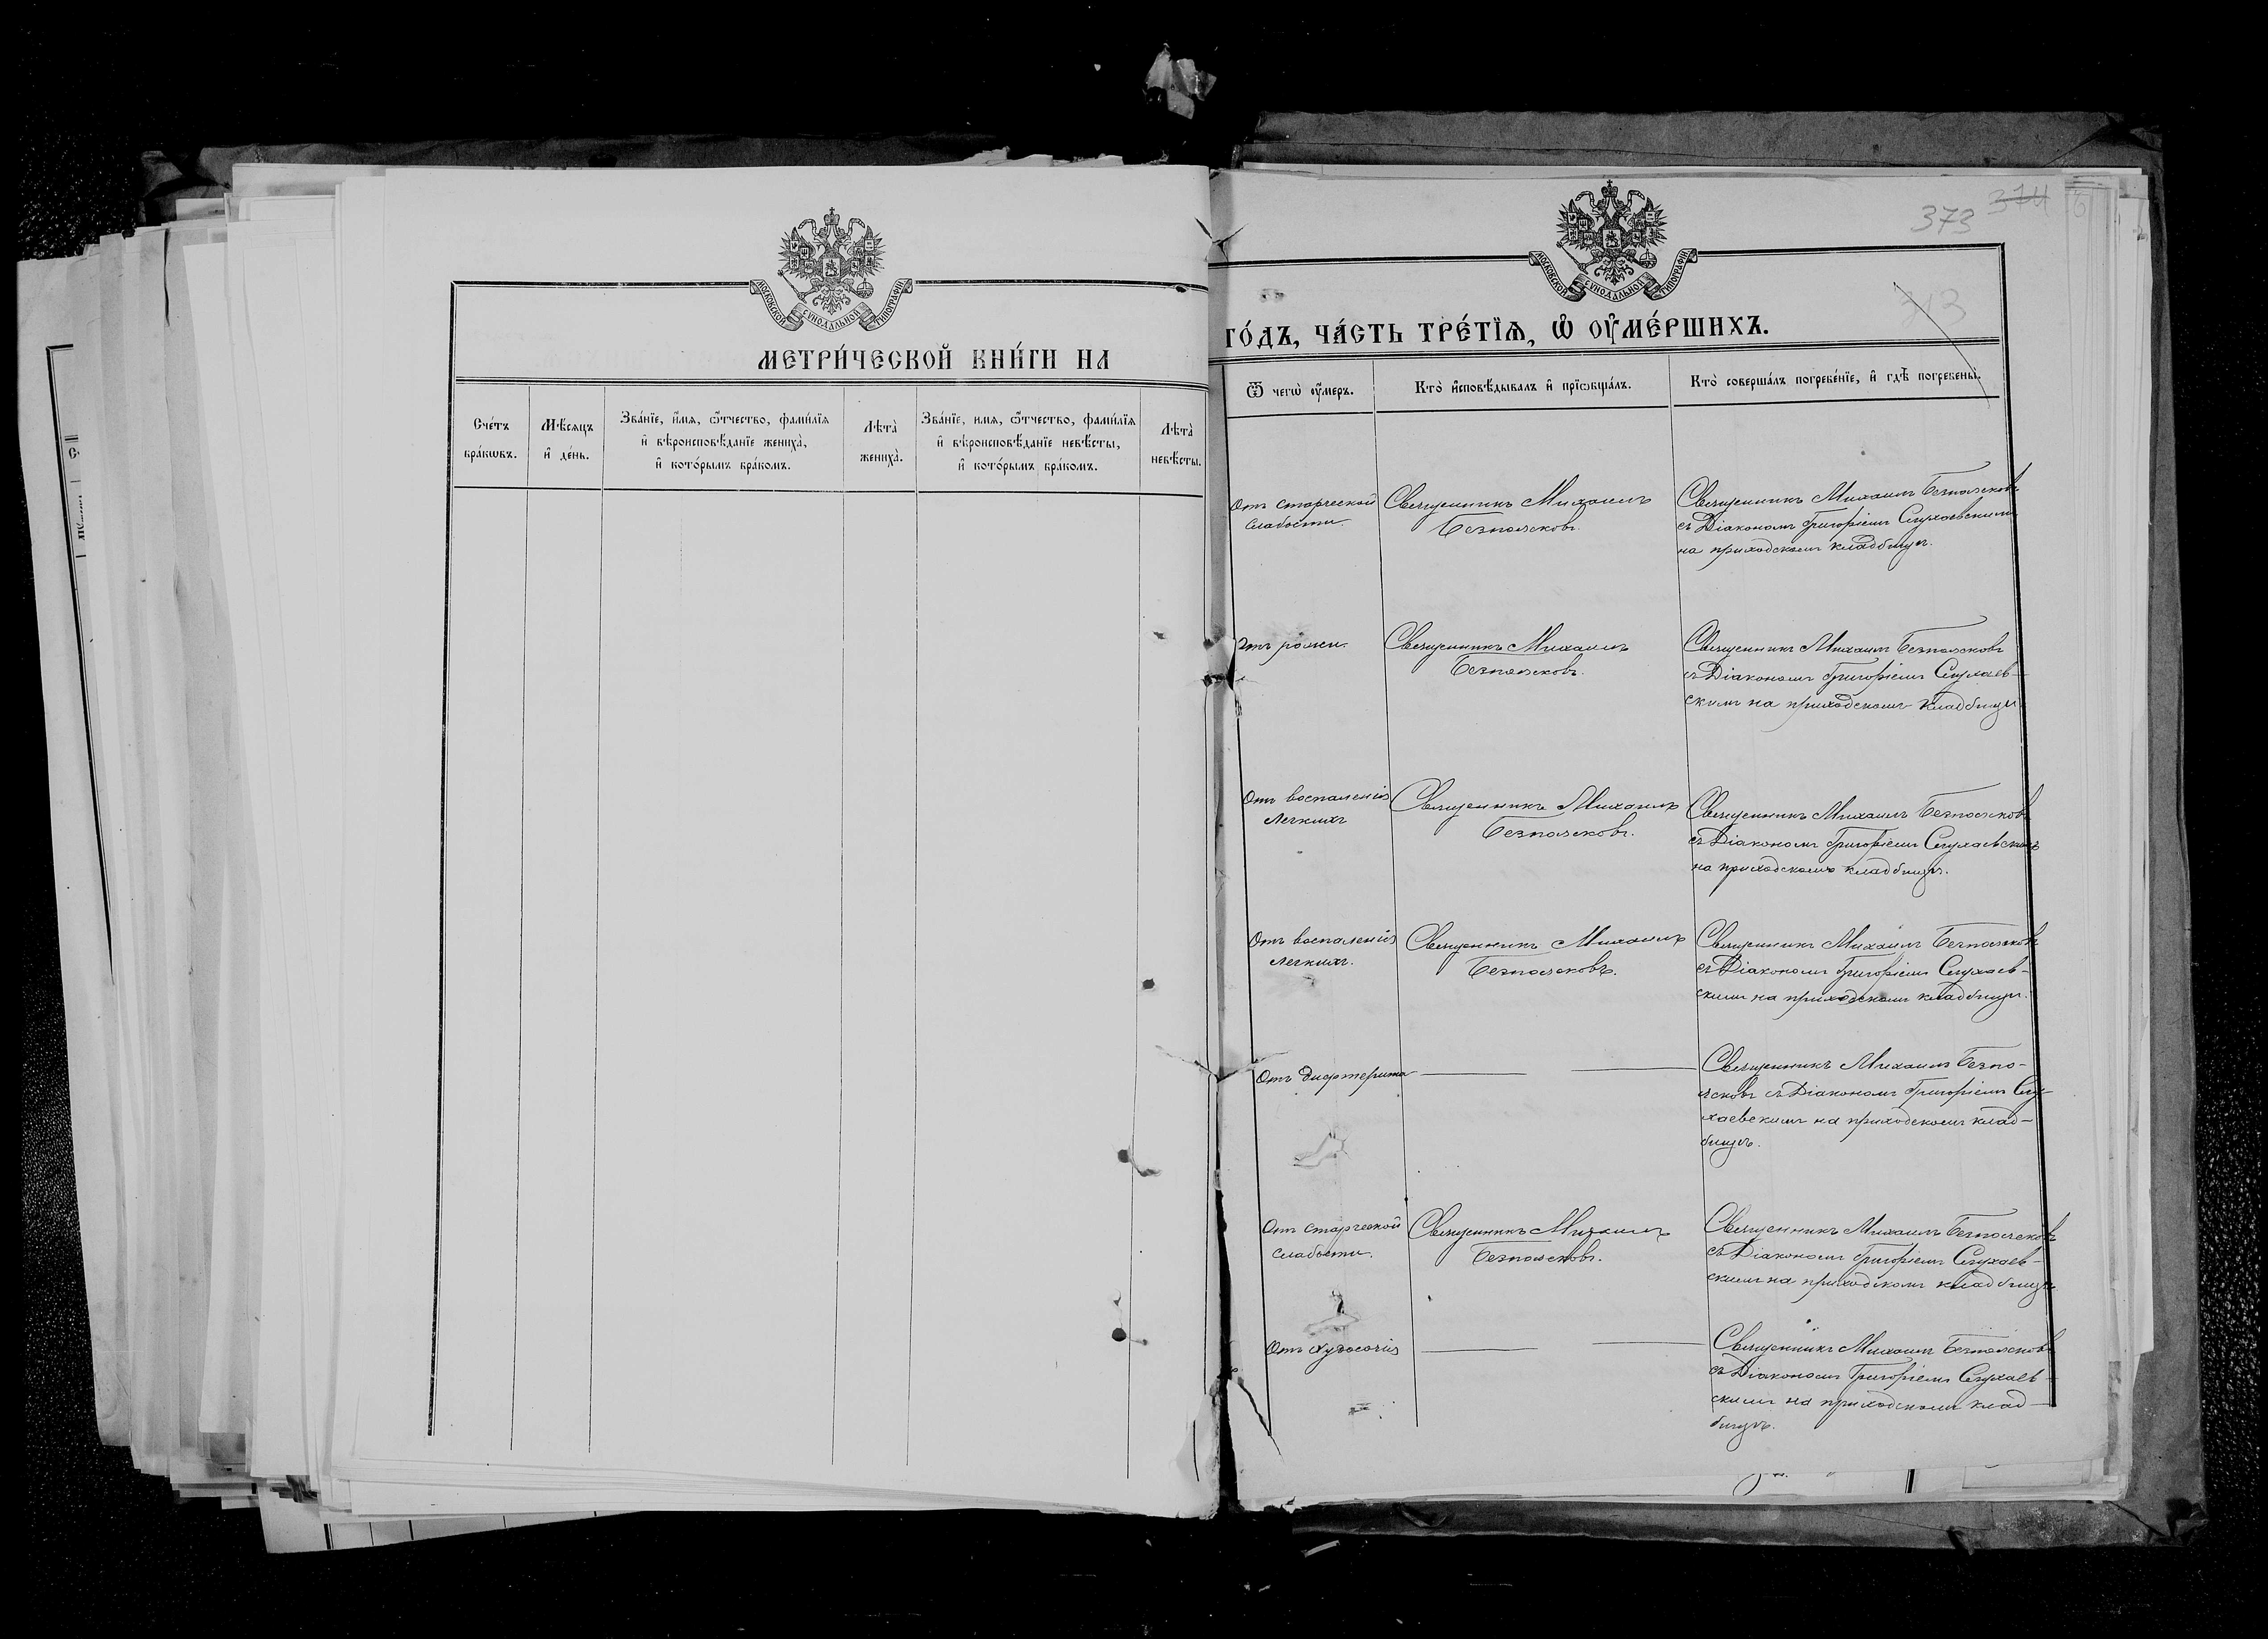 МОСКОВСКОЙ СѴНОДАЛЬНОЙ ТИПОГРАФІИ
МЕТРИ́ЧЕСКОЙ КНИ́ГИ НА
Сче́тъ
бра́кѡвъ.
Мѣ́сяцъ
и҆ де́нь.
Зва́нїе, и҆́мѧ, ѻ҆́тчество, фами́лїѧ
и҆ вѣроисповѣ́данїе жениха̀,
и҆ кото́рымъ бра́комъ.
Лѣта̀
жениха̀.
Зва́нїе, имѧ, ѻ҆́тчество, фами́лїѧ
и҆ вѣроисповѣ́данїе невѣ́сты,
и҆ кото́рымъ бра́комъ.
Лѣта̀
невѣ́сты.
373 314
МОСКОВСКОЙ СѴНОДАЛЬНОЙ ТИПОГРАФІИ
313
ГО́ДЪ, ЧА́СТЬ ТРЕ́ТЇѦ, Ѡ҆ ОУ҆МЕ́РШИХЪ.
Ѿ чегѡ̀ ᲂу҆́меръ.
Кто̀ и҆сповѣ́дывалъ и҆ прїѡбща́лъ.
Кто̀ соверша́лъ погребе́нїе, и҆ гдѣ̀ погребены̀.
Отъ старческой
слабости.
Священникъ Михаилъ
Безпоясковъ.
Священникъ Михаилъ Безпоясковъ
съ Діакономъ Григоріемъ Слухаевскимъ
на приходскомъ кладбищѣ.
Отъ рожи.
Священникъ Михаилъ
Безпоясковъ.
Священникъ Михаилъ Безпоясковъ
съ Діакономъ Григоріемъ Слухаев-
скимъ на приходскомъ кладбищѣ
Отъ воспаленія
легкихъ
Священникъ Михаилъ
Безпоясковъ.
Священникъ Михаилъ Безпоясковъ
съ Діакономъ Григоріемъ Слухаевскимъ
на приходскомъ кладбищѣ.
Отъ воспаленія
легкихъ.
Священникъ Михаилъ
Безпоясковъ.
Священникъ Михаилъ Безпоясковъ
съ Діакономъ Григоріемъ Слухаев-
скимъ на приходскомъ кладбищѣ.
Отъ дифтерита
Священникъ Михаилъ Безпо-
ясковъ съ Діакономъ Григоріемъ Слу-
хаевскимъ на приходскомъ клад-
бищѣ.
Отъ старческой
слабости.
Священникъ Михаилъ
Безпоясковъ.
Священникъ Михаилъ Безпоясковъ
съ Діакономъ Григоріемъ Слухаев-
скимъ на приходскомъ кладбищѣ
Отъ худосочія
Священникъ Михаилъ Безпоясковъ
съ Діакономъ Григоріемъ Слухаев-
скимъ на приходскомъ клад-
бищѣ.